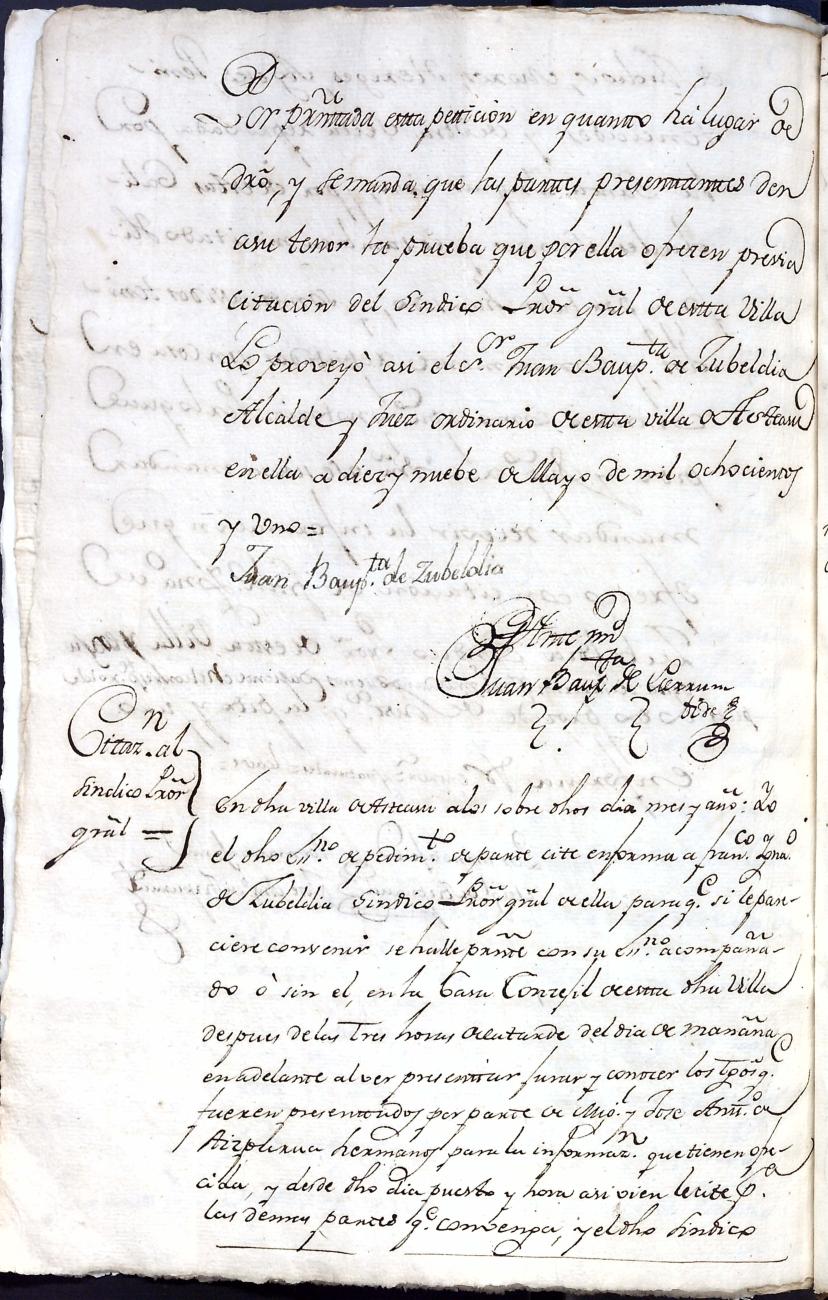 Por prñtada estta petticion en quantto há lugar de
drõ, y Semanda que las parttes presenttanttes den
asu tenor la prueba que por ella ofrezen previa
citación del Sindico Prõr grãl de estta Villa
Lo proveyò asi el Sr. Juan Baup.ta de Zubeldia
Alcalde y Juez ordinario de estta villa de Asteasu
en ella a diez y nuebe de Mayo de mil ochocientos
y Uno =
Juan Baup.ta de Zubeldia
Antte mi
Juan Baup.ta de
Cittaz.n al
Sindico Prõr
grãl =
En dha villa de Asteasu alos sobre dhos dia mes y año: Yo
el dho Ss.no de pedim.to de parte cite en forma a fran.co Ygna.o
de Zubeldia Sindico Prõr grãl de ella para q.e si le pare-
ciere convenir se halle prñte con su Ss.no acompaña-
do ò sin el, en la Casa Conzejil de estta dha Villa
despues delas Tres horas dela tarde del dia de mañana
en adelante al ver presenttar jurar y conozer los tgõs q.e
fueren presenttados por parte de Mig.l y Jose Antt.o de
Aizpurua hermanos para la informaz.n que tienen ofre-
cida, y desde dho dia puesto y hora asi vien le cite p.a
las demas partes q.e convenga, y el dho Sindico